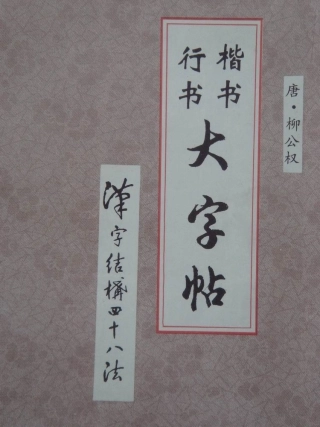 唐·柳公权
楷书
行书
大字帖
漢字结構四十八法